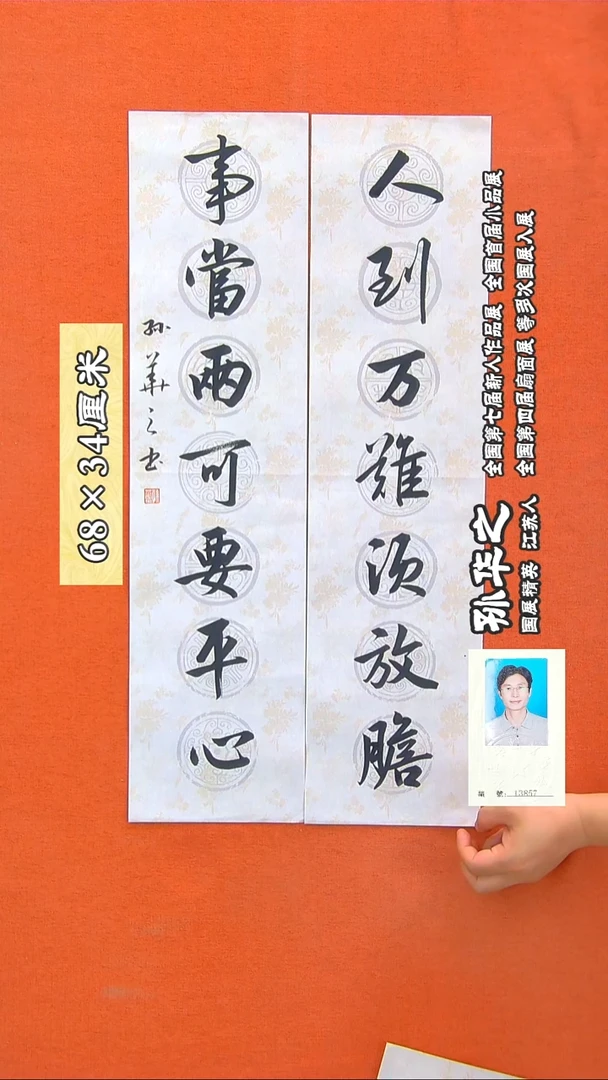 人到万難须放膽
事當兩可要平心
孙華之书
68×34厘米
孙华之
国展精英 江苏人
全国第七届新人作品展 全国首届小品展
全国第四届扇面展 等多次国展入展
號: 13857